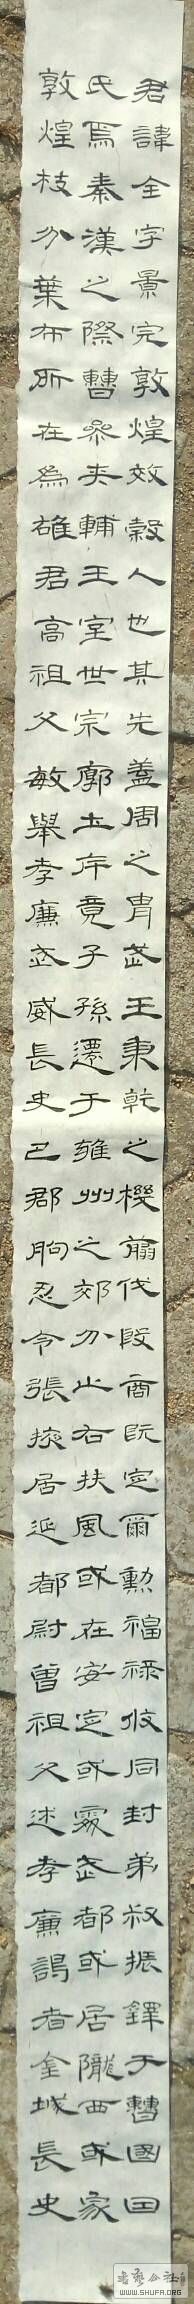 君諱全字景完敦煌效穀人也其先蓋周之胄武王秉乾之機翦伐殷商既定爾勳福祿攸同封弟叔振鐸于曹國因
氏焉秦漢之際曹參夾輔王室世宗廓土斥竟子孫遷于雍州之郊分止右扶風或在安定或處武都或居隴西或家
敦煌枝分葉布所在為雄君高祖父敏舉孝廉武威長史巴郡朐忍令張掖居延都尉曾祖父述孝廉謁者金城長史
WWW.SHUFA.ORG